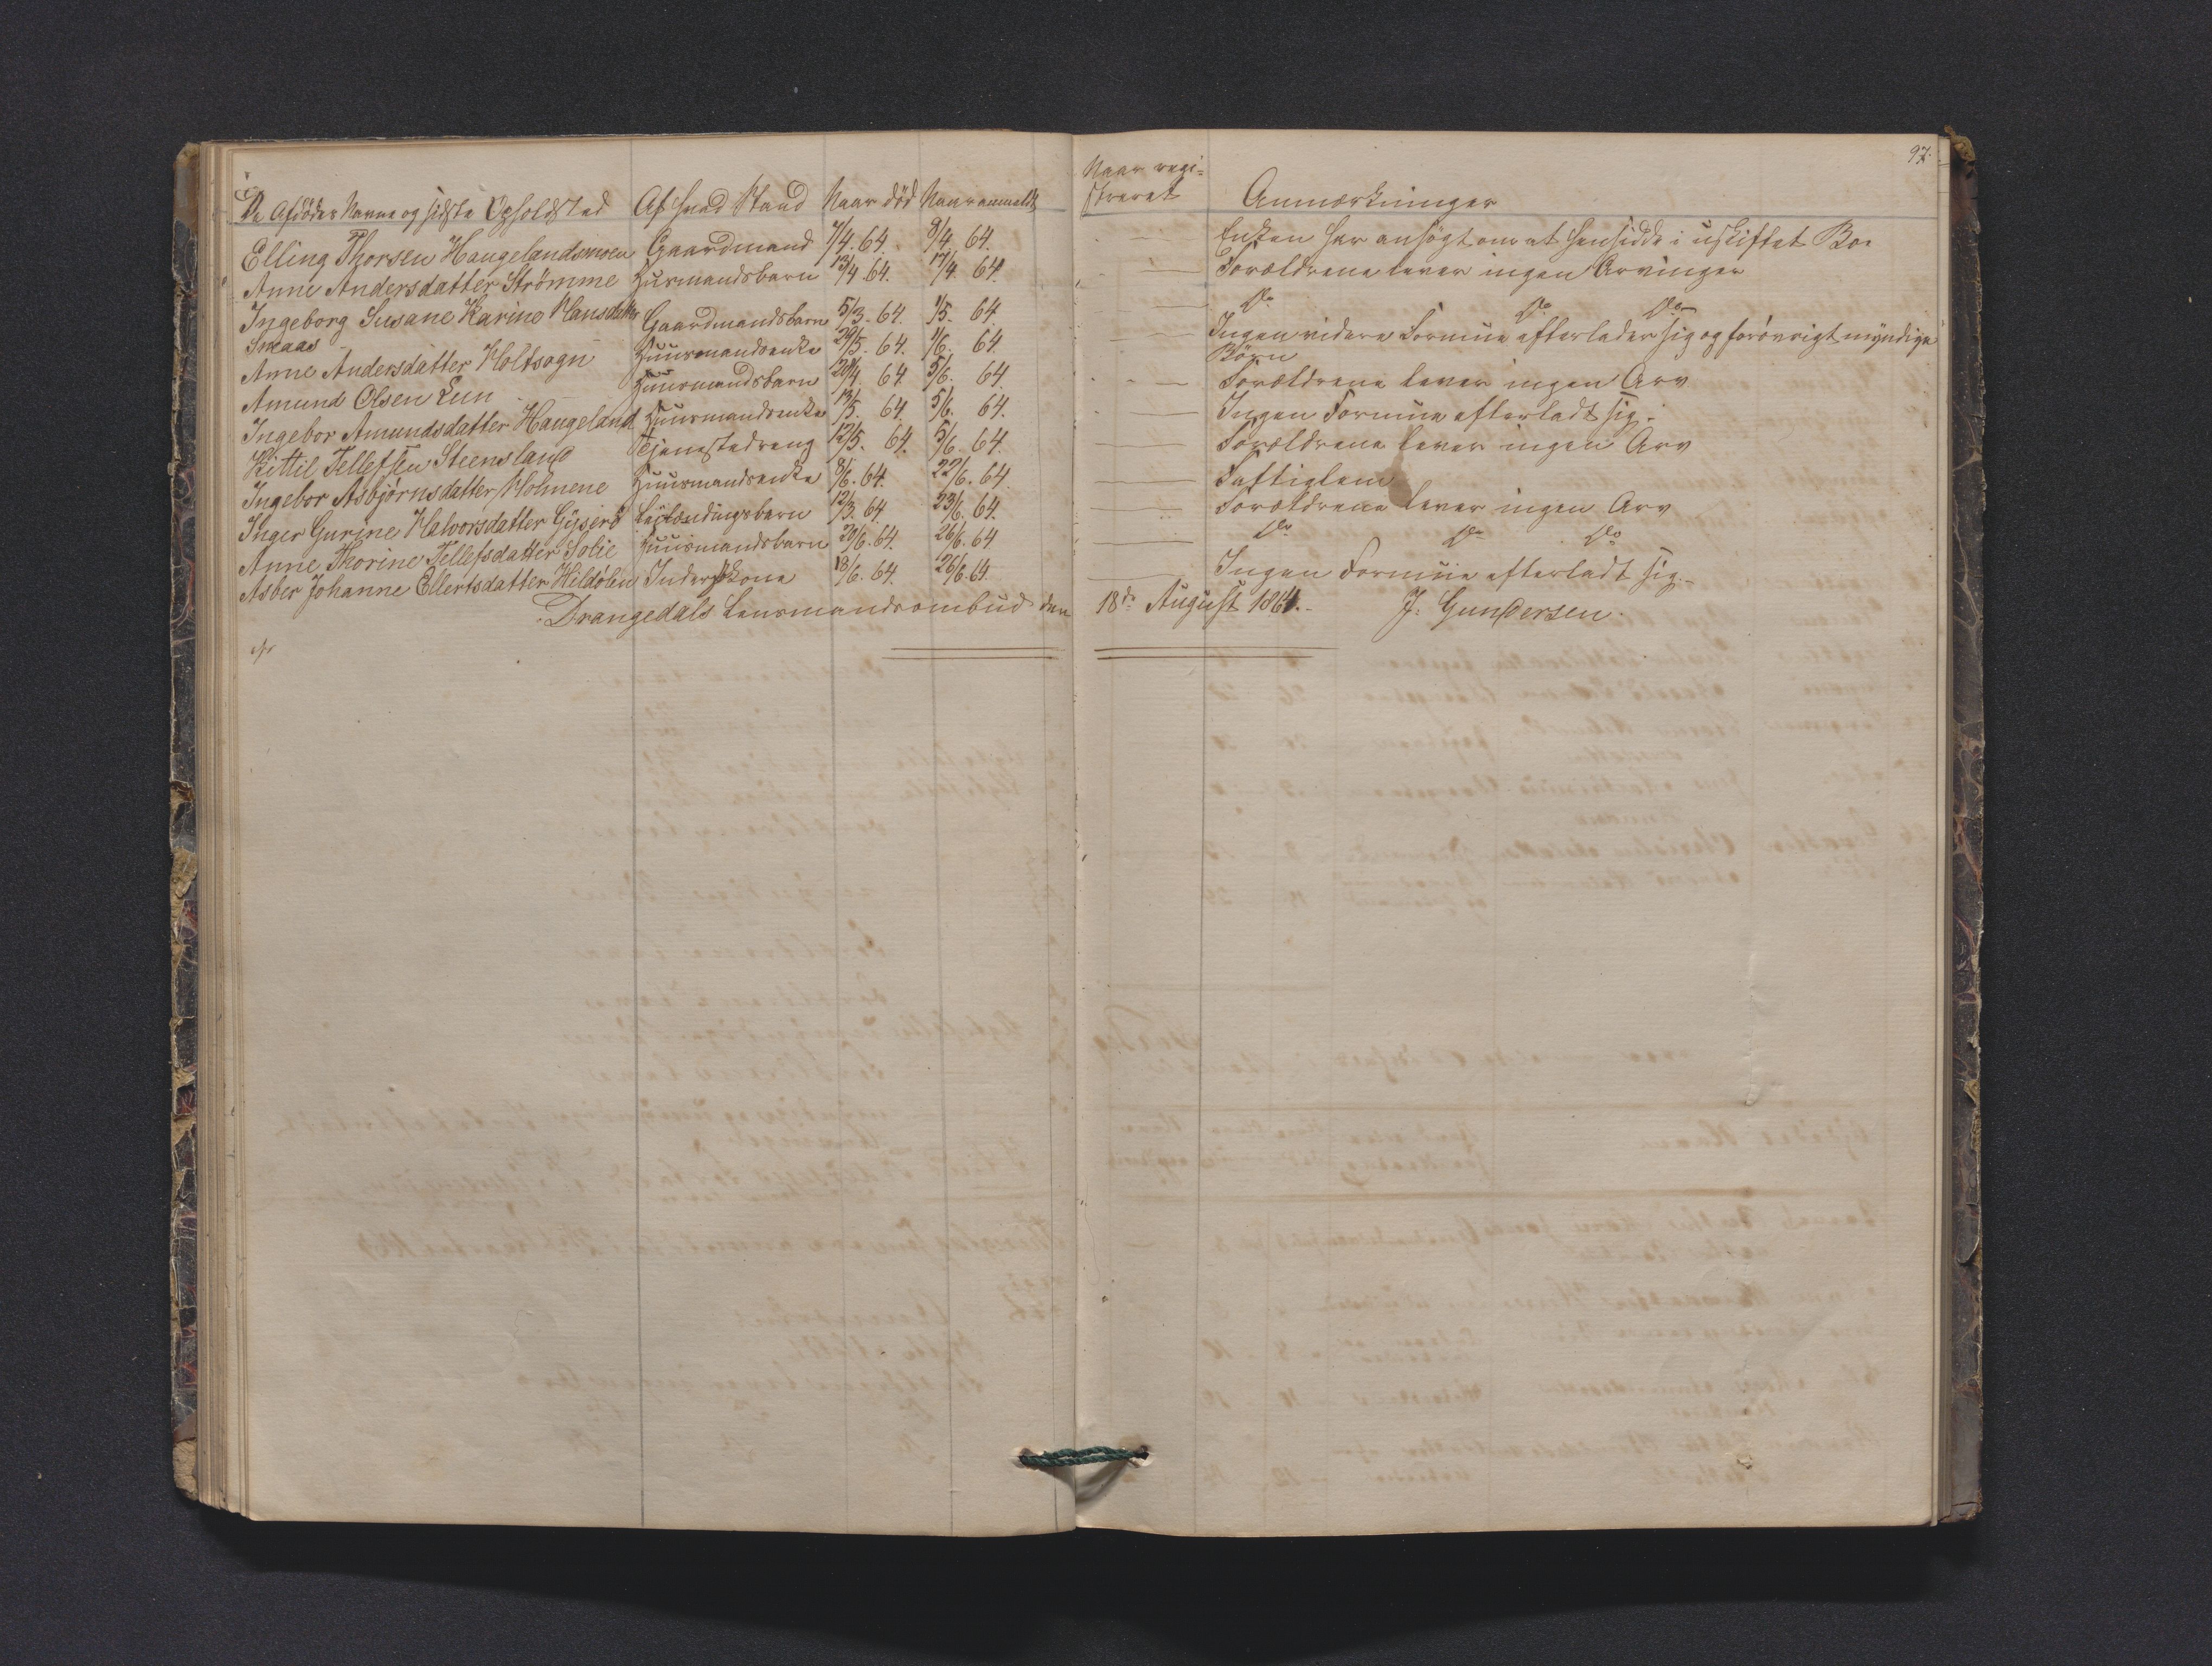 97.
De Afdödes Navne og sidste Opholdsted Af hvad Stand Naar död Naar anmeldt Naar regi= streret Anmærkninger
Elling Thorsen Haugelandsmoen Gaardmand 7/4. 64. 9/4. 64. Enken har ansögt om at hensidde i uskiftet Bo.
Anne Andersdatter Strömme Husmandsbarn 13/4. 64. 17/4. 64. Forældrene lever ingen Arvinger
Ingeborg Susane Karine Hansdatter Gaardmandsbarn 5/3. 64. 1/5. 64 Do Do Do
Sneaas
Anne Andersdatter Holtsogn Huusmandsenke 29/5. 64. 1/6. 64. Ingen videre Formue efterlader sig og forövrigt myndige
Börn
Amund Olsen Lun Huusmandsbarn 20/4. 64. 5/6. 64. Forældrene lever ingen Arv
Ingebor Amundsdatter Haugeland Huusmandsenke 13/5. 64. 5/6. 64. Ingen Formue efterladt sig.
Kittil Tellefsen Steensland Tjenestedreng 12/5. 64. 5/6. 64. Forældrene lever ingen Arv
Ingebor Asbjörnsdatter Holmene Huusmandsenke 8/6. 64. 22/6. 64. Fattiglem
Inger Gurine Halvorsdatter Gjyserö Leilændingsbarn 12/3. 64. 23/6. 64. Forældrene lever ingen Arv
Anne Thorine Tellefsdatter Solie Huusmandsbarn 20/6. 64. 26/6. 64 Do Do Do
Asber Johanne Ellertsdatter Hildölen Inderstkone 18/6. 64. 26/6. 64. Ingen Formue efterladt sig.
Drangedals Lensmandsombud den 18de August 1864. J. Gundersen.